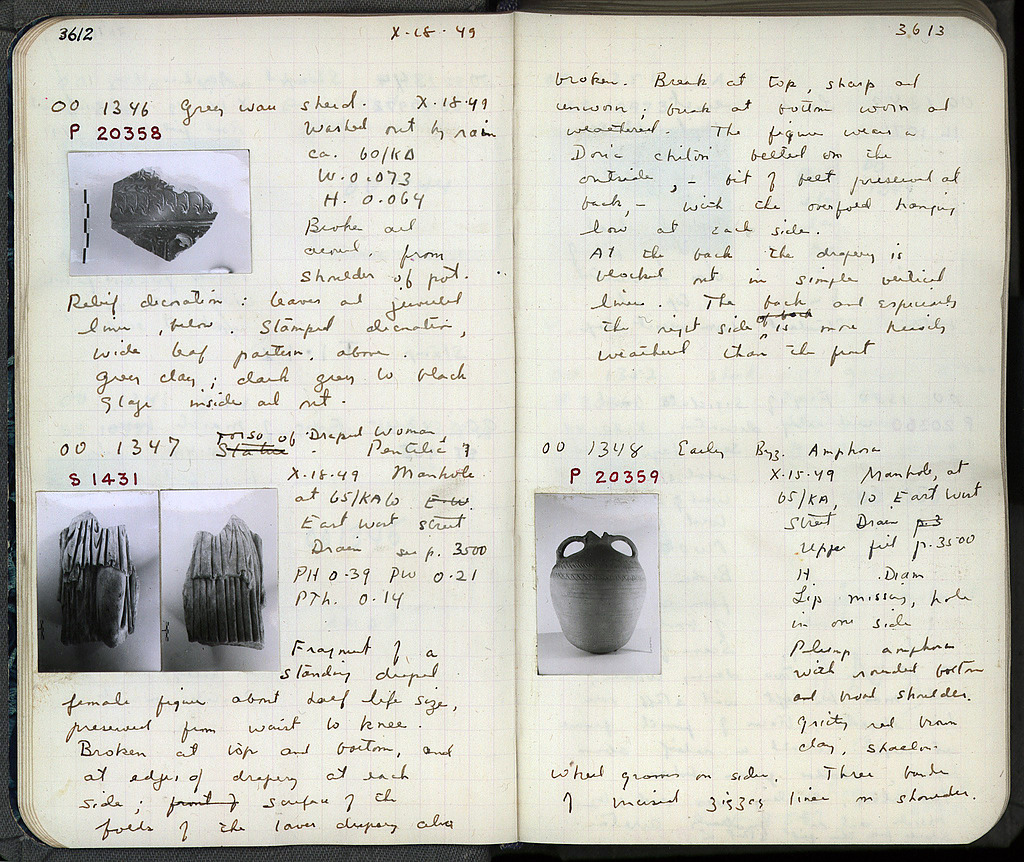 3612 X-18-49
OO 1346 Grey ware sherd. X-18-49
P 20358 Washed out by rain
ca. 60/KΔ
W. 0.073
H. 0.064
Broken all
around, from
shoulder of pot.
Relief decoration: leaves and jeweled
line, below. Stamped decoration,
wide leaf pattern, above.
Grey clay; dark grey to black
glaze inside and out.
OO 1347 Torso of Draped Woman,
Statue Pentelic?
S 1431 X-18-49 Manhole
at 65/KA 10 E-W.
East West street
Drain see p. 3500
PH 0.39 PW 0.21
PTh. 0.14
Fragment of a
standing draped
female figure about half life size,
preserved from waist to knee.
Broken at top and bottom, and
at edges of drapery at each
side; front of surface of the
folds of the lower drapery also
3613
broken. Break at top, sharp and
unworn; break at bottom worn and
weathered. The figure wears a
Doric chiton belted on the
outside, – bit of belt preserved at
back, – with the overfold hanging
low at each side.
At the back the drapery is
blocked out in simple vertical
lines. The back and especially
the right side of back is more heavily
weathered than the front
OO 1348 Early Byz. Amphora
P 20359 X-15-49 Manhole, at
65/KA, 10 East West
Street Drain p 3
Upper fill p. 3500
H. Diam
Lip missing, hole
in one side
Plump amphora
with rounded bottom
and broad shoulder.
Gritty red brown
clay, shallow
wheel grooves on sides. Three bands
of incised zigzag lines on shoulder.